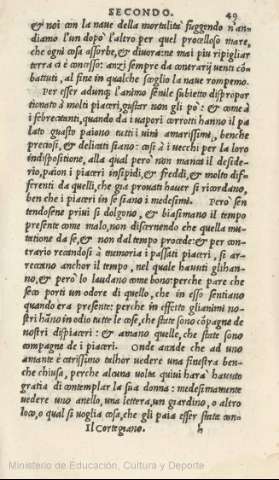 SECONDO. 49
& noi con la naue della mortalità fuggendo n'an
diamo l'un dopo l'altro per quel procelloso mare,
che ogni cosa assorbe, & diuora: ne mai piu ripigliar
terra ci è concesso: anzi sempre da contrarij uenti cō
battuti, al fine in qualche scoglio la naue rompemo.
Per esser adunq; l'animo senile subietto dispropor
tionato à molti piaceri, gustar non gli pò: & come à
i febrecitanti, quando da i uapori corrotti hanno il pa
lato guasto paiono tutti i uini amarissimi, benche
preciosi, & delicati siano: cosi à i uecchi per la loro
indispositione, alla qual però non manca il deside-
rio, paion i piaceri insipidi, & freddi, & molto dif
ferenti da quelli, che gia prouati hauer si ricordano,
ben che i piaceri in se siano i medesimi. Però sen
tendosene priui si dolgono, & biasimano il tempo
presente come malo, non discernendo che quella mu
tatione da se, & non dal tempo procede: & per con-
trario recandosi à memoria i passati piaceri, si ar-
reccano anchor il tempo, nel quale hauuti gli han-
no, & però lo laudano come bono: perche pare che
seco porti un odore di quello, che in esso sentiano
quando era presente: perche in effetto gli animi no-
stri hāno in odio tutte le cose, che state sono cōpagne de
nostri dispiaceri: & amano quelle, che state sono
compagne de i piaceri. Onde accade che ad uno
amante è carissimo talhor uedere una finestra ben-
che chiusa, perche alcuna uolta quiui harà hauuto
gratia di contemplar la sua donna: medesimamente
uedere uno anello, una lettera, un giardino, o altro
loco, o qual si uoglia cosa, che gli paia esser stata con-
Il Cortegiano. h
Ministerio de Educación, Cultura y Deporte